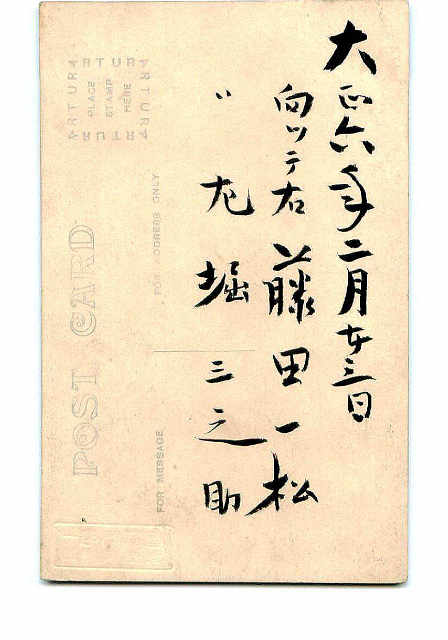 大正六年二月廿三日
向ツテ右 藤田一松
〃 左 堀三之助
POST CARD
ARTURA
ARTURA
ARTURA
ARTURA
PLACE
STAMP
HERE
FOR ADDRESS ONLY
FOR MESSAGE